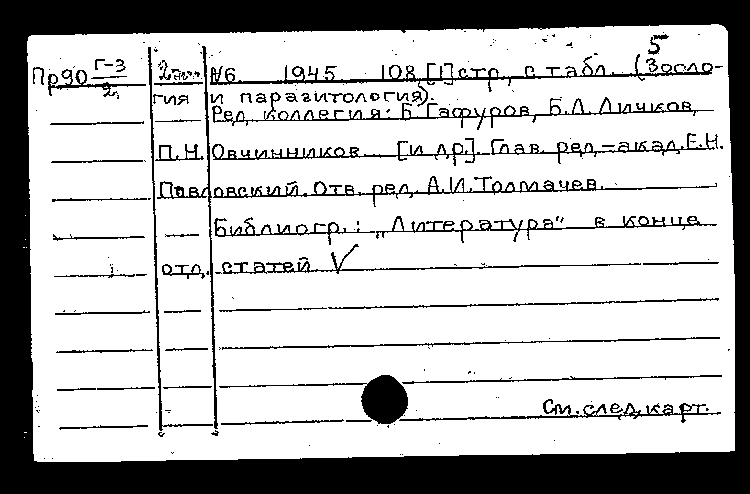 5
Пр90 Г-3 2 экз. №6. 1945 108, [1] стр., с табл. (Зооло-
2.
гия и паразитология).
Ред. коллегия: Б. Гафуров, Б.Л. Личков,
П.Н. Овчинников [и др.]. Глав. ред. – акад. Е.Н.
Павловский. Отв. ред. А.И. Толмачев.
Библиогр.: „Литература" в конце
отд. статей V
См. след. карт.